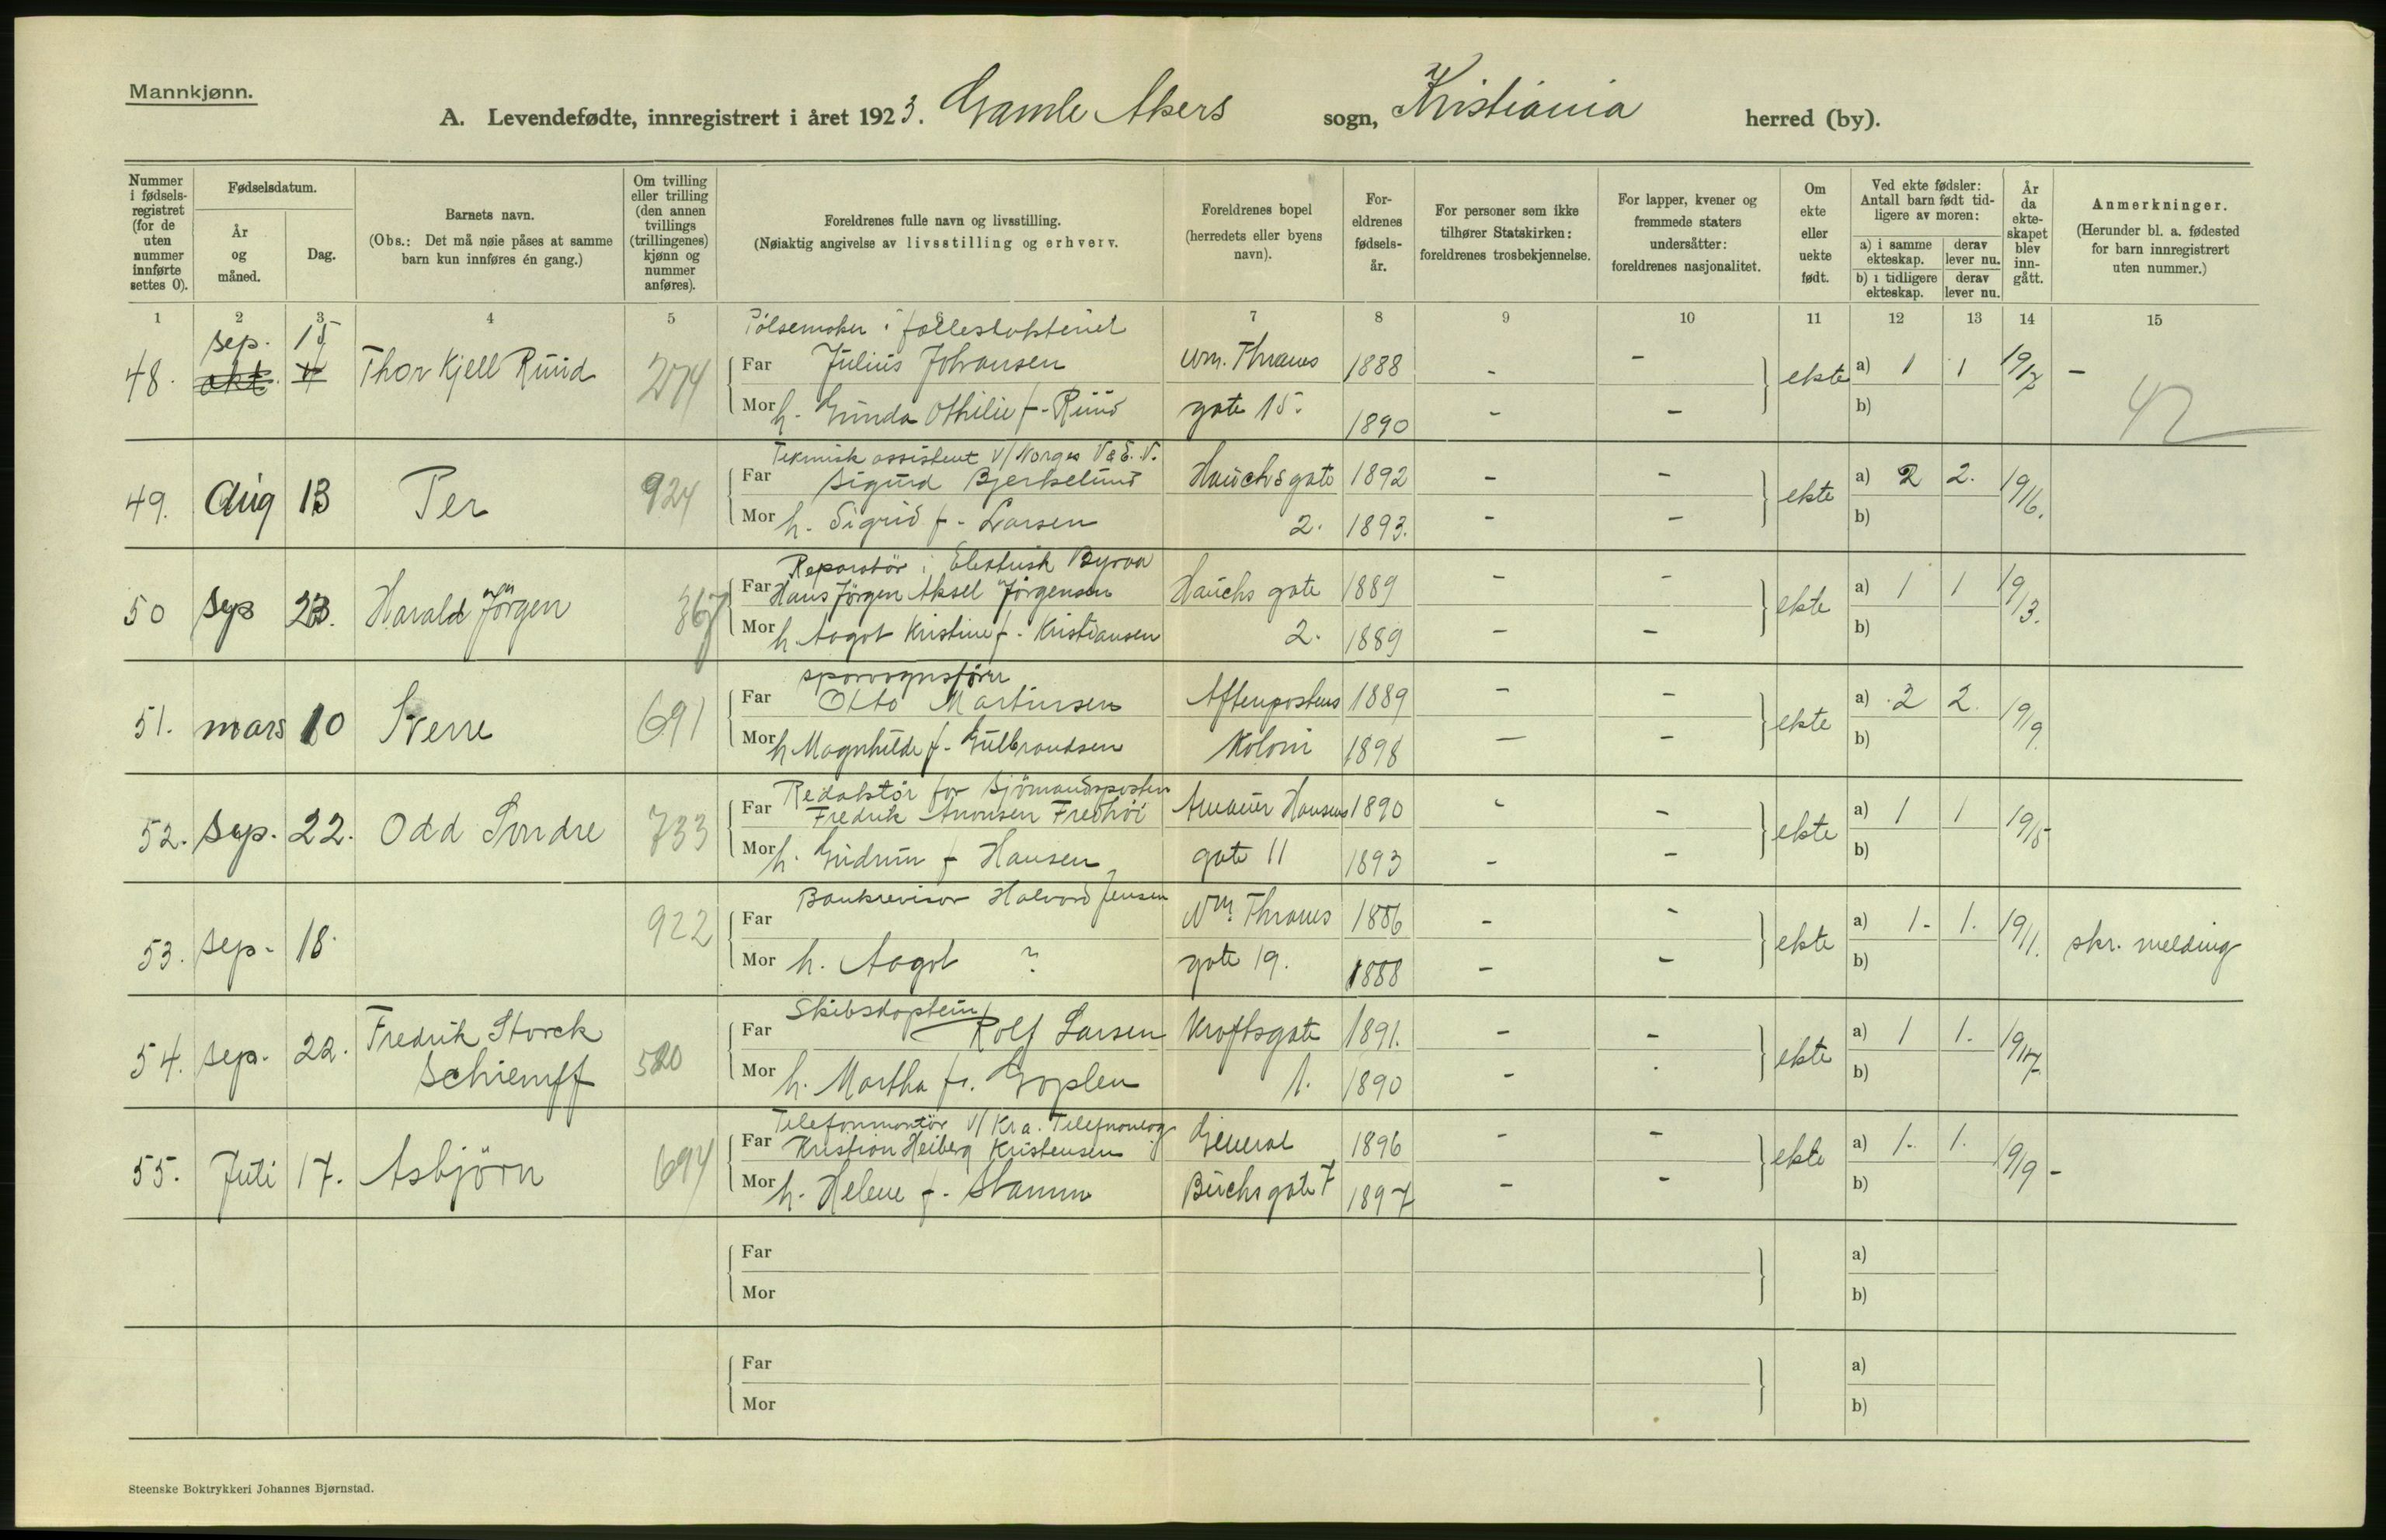 Mannkjønn.
A. Levendefødte, innregistrert i året 1923. Gamle Akers sogn, Kristiania herred (by).
Nummer i fødsels-registret (for de uten nummer innførte settes 0).
Fødselsdatum.
År og måned.
Dag.
Barnets navn.
(Obs.: Det må nøie påses at samme barn kun innføres én gang.)
Om tvilling eller trilling (den annen tvillings (trillingenes) kjønn og nummer anføres).
Foreldrenes fulle navn og livsstilling.
(Nøiaktig angivelse av livsstilling og erhverv.
Foreldrenes bopel (herredets eller byens navn).
For-eldrenes fødsels-år.
For personer som ikke tilhører Statskirken: foreldrenes trosbekjennelse.
For lapper, kvener og fremmede staters undersåtter: foreldrenes nasjonalitet.
Om ekte eller uekte født.
Ved ekte fødsler: Antall barn født tid-ligere av moren:
a) i samme ekteskap. derav lever nu.
b) i tidligere ekteskap. derav lever nu.
År da ekte-skapet blev inn-gått.
Anmerkninger.
(Herunder bl. a. fødested for barn innregistrert uten nummer.)
1 2 3 4 5 6 7 8 9 10 11 12 13 14 15
Pölsemaker i
sep. 15
48. okt. Thor Kjell Ruud 274 Far Julius Johansen Wm. Thranes 1888 - - ekte a) 1 1 19/17 -
Mor h. Gunda Othilie f. Ruud gate 15. 1890 - - b) 42
Teknisk assistent v/ Norges V & E. V.
49. Aug 13 Per 924 Far Sigurd Bjerkelund Hauchsgate 1892 - - ekte a) 2 2. 19/16.
Mor h. Sigrid f. Larsen 2. 1893. - - b)
Reparatör i Elektrisk Byraa
50 Sep 23. Harald Jörgen 367 Far Hans Jörgen Aksel Jörgensen Hauchs gate 1889 - - ekte a) 1 1 19/13.
Mor h. Aagot Kristine f. Kristiansen 2. 1889 - - b)
sporvognsförer
51. mars 10 Sverre 691 Far Otto Martinsen Aftenpostens 1889 - - ekte a) 2 2. 19/9
Mor h. Magnhilde f. Gulbrandsen Koloni 1898 - - b)
Redaktör for Sjömandsposten
52. Sep. 22. Odd Sondre 733 Far Fredrik Monsen Fredhöi Hansens 1890 - - ekte a) 1 1 19/15
Mor h. Gudrun f. Hansen gate 11 1893 - - b)
Bankrevisor Halvord Jensen
53. sep. 18. 922 Far Wm. Thranes 1886 - - ekte a) 1. 1. 19/11. skr. melding
Mor h. Aagot ? gate 19. 1888 - - b)
Skibskaptein
54. sep. 22. Fredrik Storck Schienuff 520 Far Rolf Larsen Kroftsgate 1891. - - ekte a) 1 1. 19/17.
Mor h. Martha f. Goplen 1. 1890 - . b)
Telefonmontör v/ Kr.a. Telefonanlæg
55. Juli 17. Asbjörn 694 Far Kristian Heiberg Kristensen General 1896 - - ekte a) 1. 1. 19/19 -
Mor h. Helene f. Stamm Birchs gate 7 1897 - - b)
Far a)
Mor b)
Far a)
Mor b)
Steenske Boktrykkeri Johannes Bjørnstad.